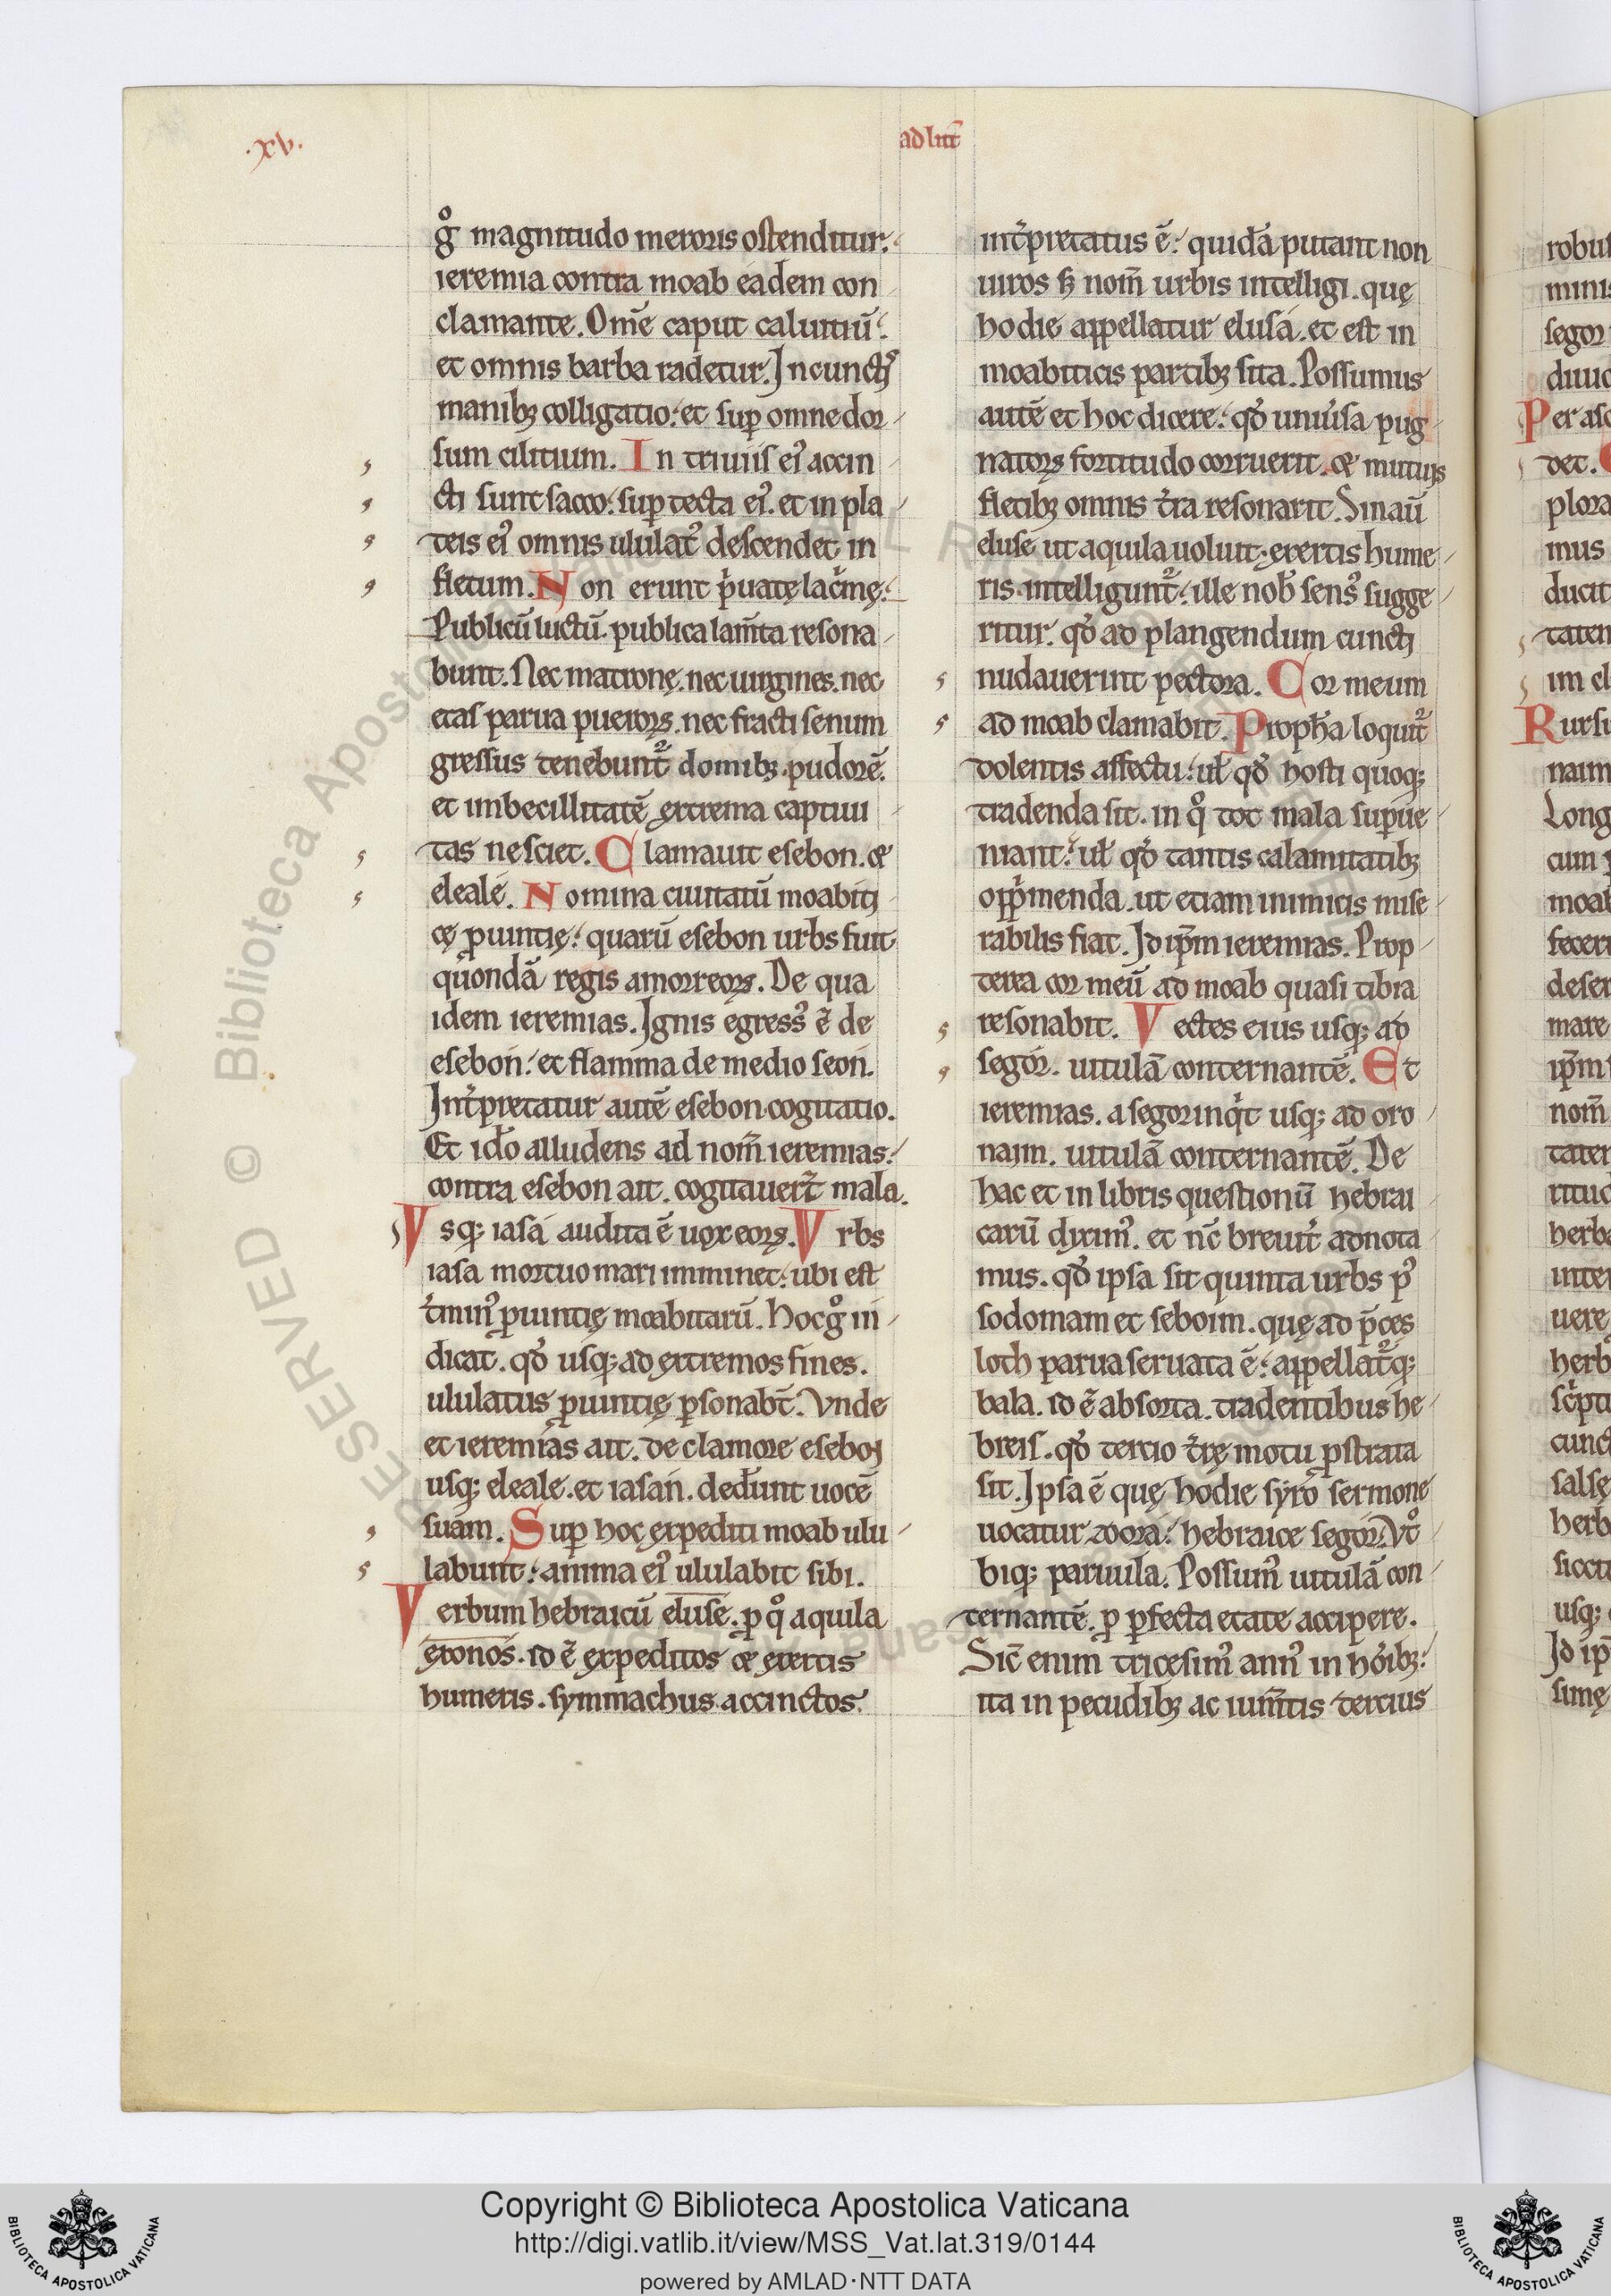 .xv.
ad litt̄
gͦ magnitudo meroris ostenditur.
ieremia contra moab eadem con
clamante. Om̄e caput caluitiū.
et omnis barba radetur. In cunctis
manibꝫ colligatio. et suꝑ omne dor
sum cilitium. In triuiis ei᾽ accin
cti sunt sacco. suꝑ tecta ei᾽. et in pla
teis ei᾽ omnis ululat᾽ descendet in
fletum. Non erunt pͥuatę lacͥmę.
Publicū luctū. publica lam̄ta resona
bunt. Nec matronę. nec uirgines. nec
etas parua pueroꝝ. nec fracti senum
gressus tenebunt᷑ domibꝫ. pudorē.
et imbecillitatē extrema captiui
tas nesciet. Clamauit esebon. et
eleale. Nomina ciuitatū moabiti
cę ꝓuintię. quarū esebon urbs fuit
quondā regis amorreoꝝ. De qua
idem ieremias. Ignis egress᾽ ē de
esebon. et flamma de medio seon.
Int̾pretatur autē esebon cogitatio.
Et id̾o alludens ad nom̄ ieremias.
contra esebon ait. cogitauert̄ mala.
Vsqꝫ iasa audita ē uox eoꝝ. Vrbs
iasa mortuo mari imminet. ubi est
t̾min᾽ ꝓuintię moabitarū. Hoc gͦ in
dicat. qđ usqꝫ ad extremos fines.
ululatus ꝓuintię ꝑsonabt̄. Vnde
et ieremias ait. de clamore esebon
usqꝫ eleale. et iasan. ded̾unt uocē
suam. Suꝑ hoc expediti moab ulu
labunt. anima ei᾽ ululabit sibi.
Verbum hebraicū eluse. ꝓ qͦ aquila
exonos. id ē expeditos et exertis
humeris. symmachus accinctos
int̾pretatus ē. quidā putant non
uiros sꝫ nom̄ urbis intelligi. quę
hodie appellatur elusa. et est in
moabiticis partibꝫ sita. Possumus
autē et hoc dicere. qđ uniu̾sa pug
natoꝝ fortitudo corruerit. et mutuis
fletibꝫ omnis t̾ra resonarit. Sin aū
eluse ut aquila uoluit. exertis hume
ris intelligunt᷑. ille nob̄ sens᾽ sugge
ritur. qđ ad plangendum cuncti
nudauerint pectora. Cor meum
ad moab clamabit. Proph̄a loquit᷑
dolentis affectu. uł qđ hosti quoqꝫ
tradenda sit. in qͦ tot mala suꝑue
niant. uł qđ tantis calamitatibꝫ
oppͥmenda. ut etiam inimicis mise
rabilis fiat. Id ip̄m ieremias. Prop
terea cor meū ad moab quasi tibia
resonabit. Vectes eius usqꝫ ad
segor. uitulā conternantē. Et
ieremias. a segor inqͥt usqꝫ ad oro
naim. uitulā conternantē. De
hac et in libris questionū hebrai
carū dixim᾽. et nc̄ breuit̾ adnota
mus. qđ ipsa sit quinta urbs p᾽
sodomam et seboim. quę ad p̄ces
loth parua seruata ē. appellat᷑qꝫ
bala. id ē absorta. tradentibus he
breis. qđ tercio t̾rę motu ꝓstrata
sit. Ipsa ē quę hodie syro sermone
uocatur zoora. hebraice segor. Vtͦ
biqꝫ paruula. Possum᾽ uitulā con
ternantē. ꝓ ꝑfecta etate accipere.
Sic̄ enim tricesim᾽ ann᾽ in hōibꝫ.
ita in pecudibꝫ ac ium̄tis tercius
Copyright © Biblioteca Apostolica Vaticana
http://digi.vatlib.it/view/MSS_Vat.lat.319/0144
powered by AMLAD·NTT DATA
BIBLIOTECA APOSTOLICA VATICANA
BIBLIOTECA APOSTOLICA VATICANA